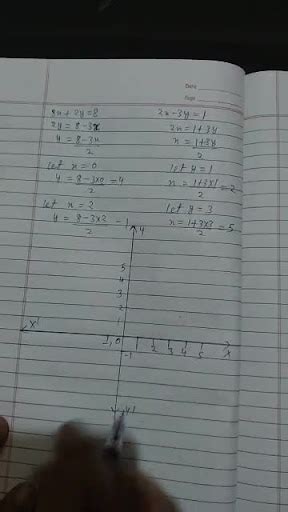 Date
Page
3x + 2y = 8
2y = 8-3x
y = 8-3x
2
let x = 0
y = 8-3×0 = 4
2
let x = 2
y = 8-3×2 = 1
2
2x-3y = 1
2x = 1+3y
x = 1+3y
2
let y = 1
x = 1+3×1 = 2
2
let y = 3
x = 1+3×3 = 5
2
y
5
4
3
2
1
x'
0
1 2 3 4 5
x
-1
y'